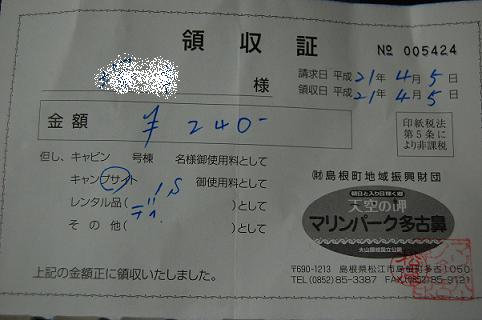 領収証
№ 005424
様
請求日 平成21年4月5日
領収日 平成21年4月5日
金額 ¥240-
印紙税法
第5条に
より非課税
但し、キャビン 号棟 名様御使用料として
キャンプサイト 御使用料として
レンタル品( )として
その他( )として
㈶島根町地域振興財団
朝日と入り日輝く郷
天空の岬
マリンパーク多古鼻
大山隠岐国立公園
上記の金額正に領収いたしました。
〒690-1213 島根県松江市島根町多古1050
TEL(0852)85-3387 FAX(0852)85-9121